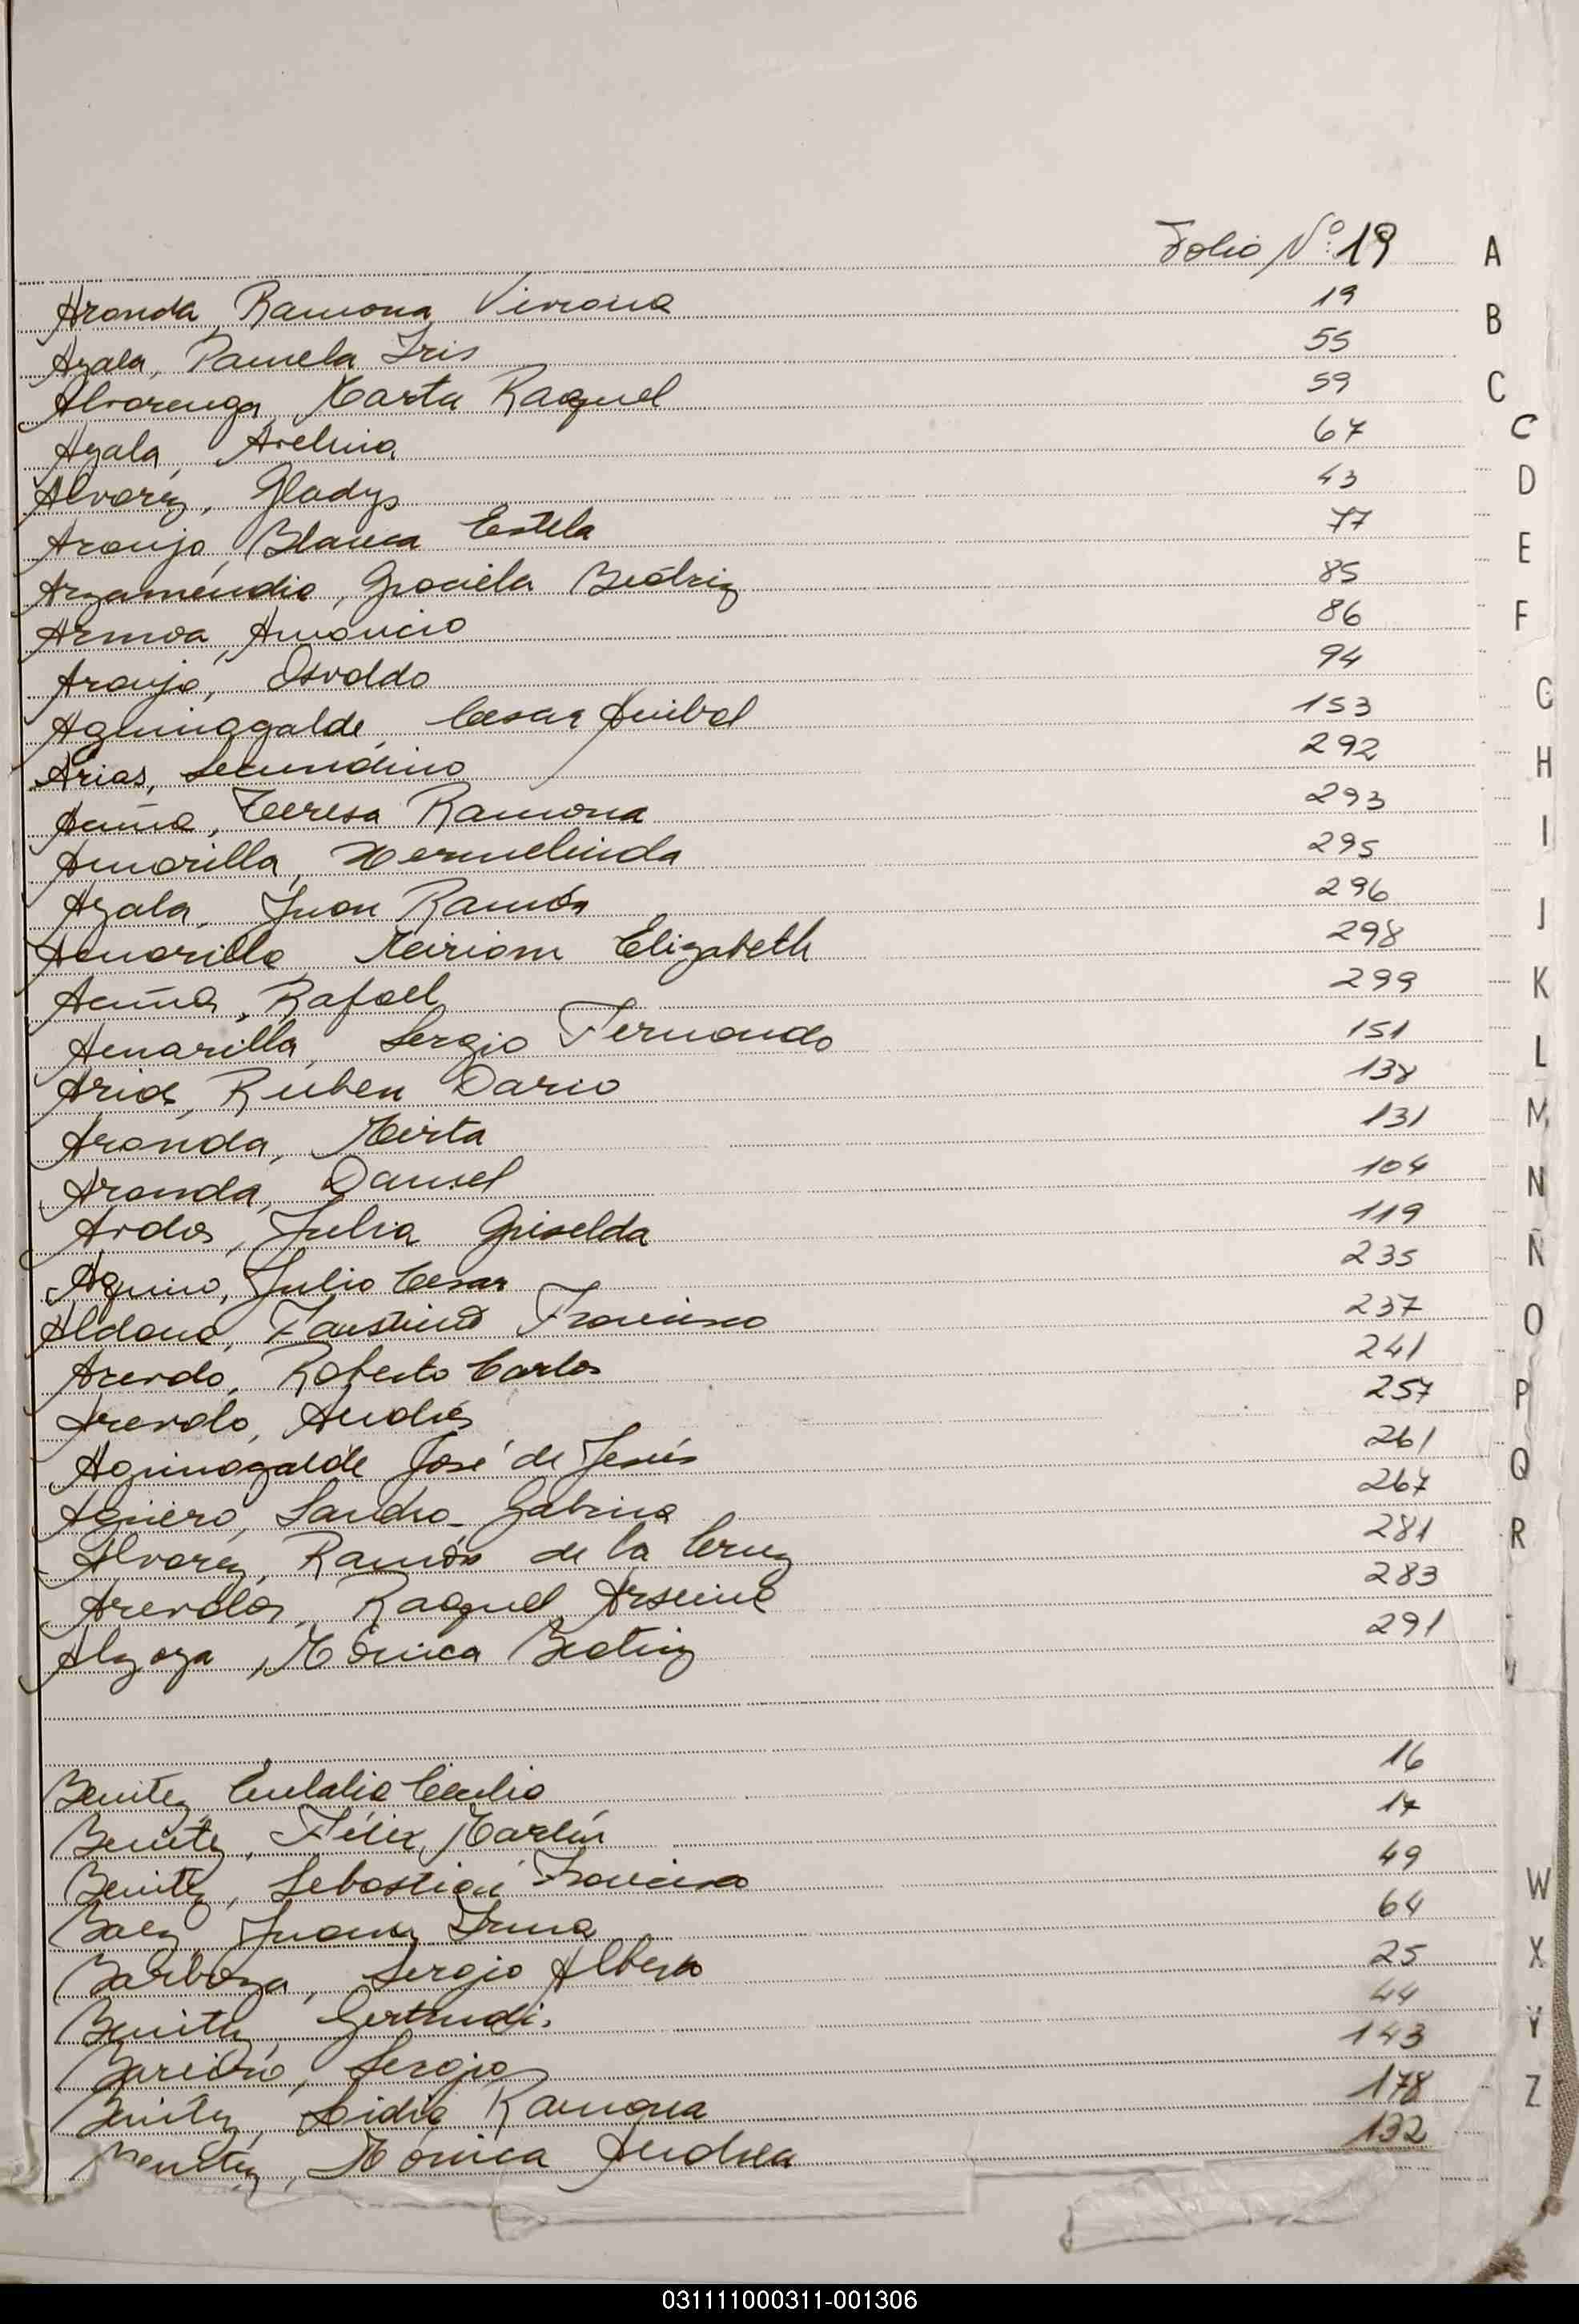 Folio Nº: 19
A
Aranda, Ramona Viviana 19
B
Ayala, Pamela Iris 55
Alvarenga, Marta Raquel 59
C
Ayala, Avelina 67
C
Alvarez, Gladys 43
D
Araujo, Blanca Estela 77
E
Arzamendia, Graciela Beatriz 85
Armoa, Amancio 86
F
Araujo, Osvaldo 94
Aguinagalde, Cesar Anibal 153
G
Arias, Secundino 292
H
Acuña, Teresa Ramona 293
I
Amarilla, Hermelinda 295
Ayala, Juan Ramón 296
J
Amarilla Miriam Elizabeth 298
Acuña, Rafael 299
K
Amarilla, Sergio Fernando 151
L
Arias, Ruben Dario 138
Aranda, Mirta 131
M
Aranda, Daniel 104
N
Julia Griselda 119
Ñ
Aquino, Julio Cesar 235
Aldana, Faustino Francisco 237
O
Roberto Carlos 241
Andrés 257
P
Aguinagalde José de Jesús 261
Q
Agüero, Sandra Gabina 267
Alvarez, Ramón de la Cruz 281
R
Arevalos, Raquel Arsenia 283
Alzoza, Mónica Beatriz 291
Benitez Eulalia Cecilia 16
Benitez, Félix Martín 17
Benitez, Sebastian Francisco 49
W
Baez, Juana Irma 64
Barboza, Sergio Alberto 25
X
Benitez, Gertrudi. 44
Y
Sergio 143
Benitez, Lidia Ramona 178
Z
Benitez, Mónica Andrea 132
031111000311-001306